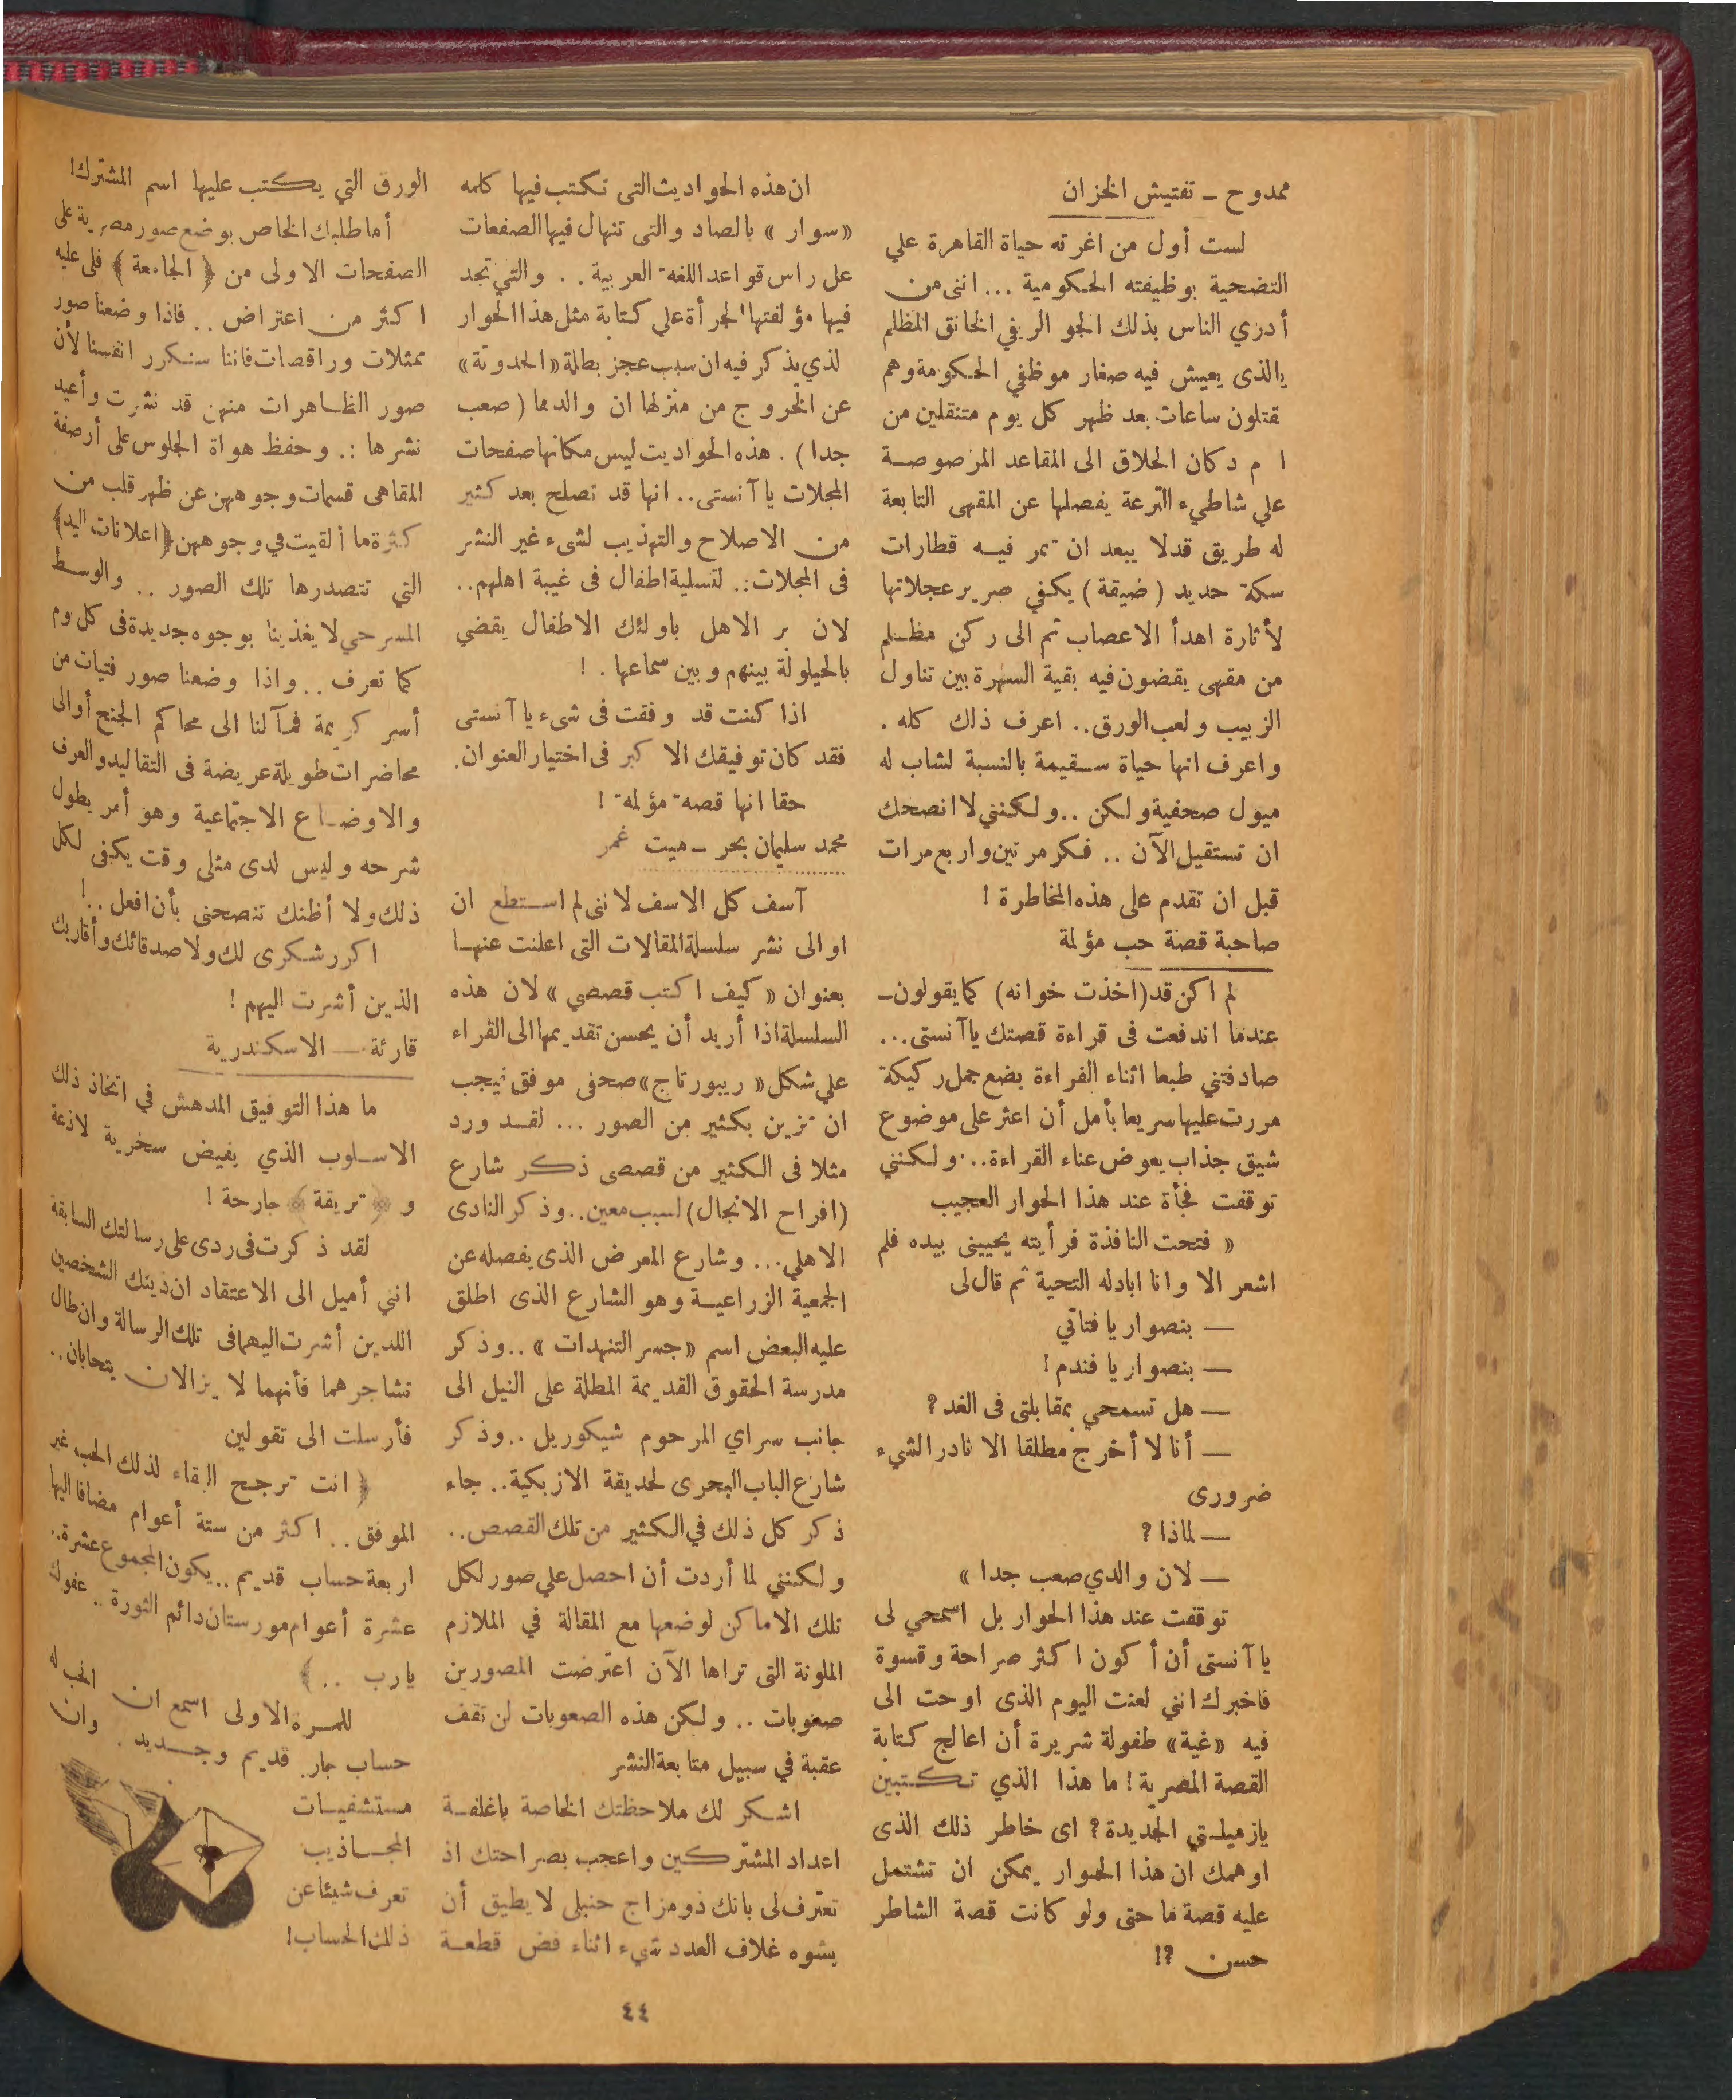 ممدوح — تفتيش الخزان
لست أول من اغرته حياة القاهرة علي
التضحية بوظيفته الحكومية ... انني من
أدري الناس بذلك الجو الريفي الخانق المظلم
يالذى يعيش فيه صغار موظفي الحكومة وهم
قتلون ساعات بعد ظهر كل يوم متنقلين من
ا م دكان الحلاق الى المقاعد المرصوصة
علي شاطيء الترعة يفصلها عن المقهى التابعة
له طريق قدلا يبعد ان تمر فيه قطارات
سكة حديد ( ضيقة ) يكفي صرير عجلاتها
لأثارة اهدأ الاعصاب ثم الى ركن مظلم
من مقهى يقضون فيه بقية السهرة بين تناول
الزبيب ولعب الورق .. اعرف ذلك كله .
واعرف انها حياة سقيمة بالنسبة لشاب له
ميول صحفية ولكن .. ولكنني لا انصحك
ان تستقيل الآن .. فكر مرتين واربع مرات
قبل ان تقدم على هذه المخاطرة !
صاحبة قصة حب مؤلمة
لم اكن قد (اخذت خوانه) كما يقولون—
عندما اندفعت فى قراءة قصتك يا آنستى ...
صادفتني طبعا اثناء القراءة بضع جمل ركيكة
مررت عليها سريعا بأمل أن اعثر على موضوع
شيق جذاب يعوض عناء القراءة .. ولكنني
توقفت فجأة عند هذا الحوار العجيب
« فتحت النافذة فرأيته يحييني بيده فلم
اشعر الا وانا ابادله التحية ثم قال لى
— بنصوار يا فتاتي
— بنصوار يا فندم !
— هل تسمحي بمقابلتى فى الغد ؟
— أنا لا أخرج مطلقا الا نادر الشيء
ضرورى
— لماذا ؟
— لان والدي صعب جدا »
توقفت عند هذا الحوار بل اسمحي لى
يا آنستى أن أكون اكثر صراحة وقسوة
فاخبرك انني لعنت اليوم الذى اوحت الى
فيه «غية» طفولة شريرة أن اعالج كتابة
القصة المصرية ! ما هذا الذي تكتبين
يازميلتي الجديدة ؟ اى خاطر ذلك الذى
اوهمك ان هذا الحوار يمكن ان تشتمل
عليه قصة ما حتى ولو كانت قصة الشاطر
حسن ؟!
ان هذه الحواديث التى تكتب فيها كلمه
«سوار » بالصاد والتى تنهال فيها الصفعات
عل راس قواعد اللغه العربية .. والتي تجد
فيها مؤلفتها الجرأة علي كتابة مثل هذا الحوار
لذي يذكر فيه ان سبب عجز بطلة «الحدوتة»
عن الخروج من منزلها ان والدها ( صعب
جدا ) . هذه الحواديت ليس مكانها صفحات
المجلات يا آنستى .. انها قد تصلح بعد كثير
من الاصلاح والتهذيب لشىء غير النشر
فى المجلات .. لتسلية اطفال فى غيبة اهلهم ..
لان بر الاهل باولئك الاطفال يقضي
بالحيلولة بينهم وبين سماعها . !
اذا كنت قد وفقت فى شىء يا آنستى
فقد كان توفيقك الاكبر فى اختيار العنوان .
حقا انها قصه مؤلمه !
محمد سليمان بحر — ميت غمر
آسف كل الاسف لانني لم استطع ان
اوالى نشر سلسلة المقالات التى اعلنت عنها
بعنوان « كيف اكتب قصصي » لان هذه
السلسلة اذا أريد أن يحسن تقديمها الى القراء
علي شكل « ريبورتاج » صحفى موفق نيجب
ان تزين بكثير من الصور ... لقد ورد
مثلا فى الكثير من قصصى ذكر شارع
(افراح الانجال) لسبب معين .. وذكر النادى
الاهلي ... وشارع المعرض الذى يفصله عن
الجمعية الزراعية وهو الشارع الذى اطلق
عليه البعض اسم « جسر التنهدات » .. وذكر
مدرسة الحقوق القديمة المطلة على النيل الى
جانب سراي المرحوم شيكوريل .. وذكر
شارع الباب البحرى لحديقة الازبكية .. جاء
ذكر كل ذلك في الكثير من تلك القصص ..
ولكنني لما أردت أن احصل علي صور لكل
تلك الاماكن لوضعها مع المقالة في الملازم
الملونة التى تراها الآن اعترضت المصورين
صعوبات .. ولكن هذه الصعوبات لن تقف
عقبة في سبيل متابعة النشر
اشكر لك ملاحظتك الخاصة باغلفة
اعداد المشتركين واعجب بصراحتك اذ
تعترف لى بانك ذو مزاج حنبلى لا يطيق أن
يشوه غلاف العدد شيء اثناء فض قطعة
الورق التي يكتب عليها اسم المشترك !
أما طلبك الخاص بوضع صور مصرية على
الصفحات الاولى من ﴿ الجامعة ﴾ فلى عليه
اكثر من اعتراض .. فاذا وضعنا صور
ممثلات وراقصات فاننا سنكرر انفسنا لأن
صور الظاهرات منهن قد نشرت وأعيد
نشرها .. وحفظ هواة الجلوس على أرصفة
المقاهى قسمات وجوههن عن ظهر قلب من
كثرة ما ألقيت في وجوههن ﴿ اعلانات اليد ﴾
التي تتصدرها تلك الصور .. والوسط
المسرحي لا يغذينا بوجوه جديدة فى كل وم
كما تعرف .. واذا وضعنا صور فتيات من
أسر كريمة فمآلنا الى محاكم الجنح أوالى
محاضرات طويلة عريضة فى التقاليد والعرف
والاوضاع الاجتماعية وهو أمر يطول
شرحه وليس لدى مثلى وقت يكفى لكل
ذلك ولا أظنك تنصحنى بأن افعل .. !
اكرر شكرى لك ولاصدقائك وأقاربك
الذين أشرت اليهم !
قارئة — الاسكندرية
ما هذا التوفيق المدهش في اتخاذ ذلك
الاسلوب الذي يفيض سخرية لاذعة
و ﴿ تريقة ﴾ جارحة !
لقد ذكرت فى ردى على رسالتك السابقة
انني أميل الى الاعتقاد ان ذينك الشخصين
اللدين أشرت اليهما فى تلك الرسالة وان طال
تشاجرهما فأنهما لا يزالان يتحابان ..
فأرسلت الى تقولين
﴿ انت ترجح البقاء لذلك الحب غير
الموفق .. اكثر من ستة أعوام مضافا اليها
اربعة حساب قديم .. يكون المجموع عشرة ..
عشرة أعوام مورستان دائم الثورة .. عفوك
يارب .. ﴾
للمرة الاولى اسمع ان الحب له
حساب جار. قديم وجديد . وان
مستشفيات
المجاذيب
تعرف شيئا عن
ذلك الحساب !
٤٤